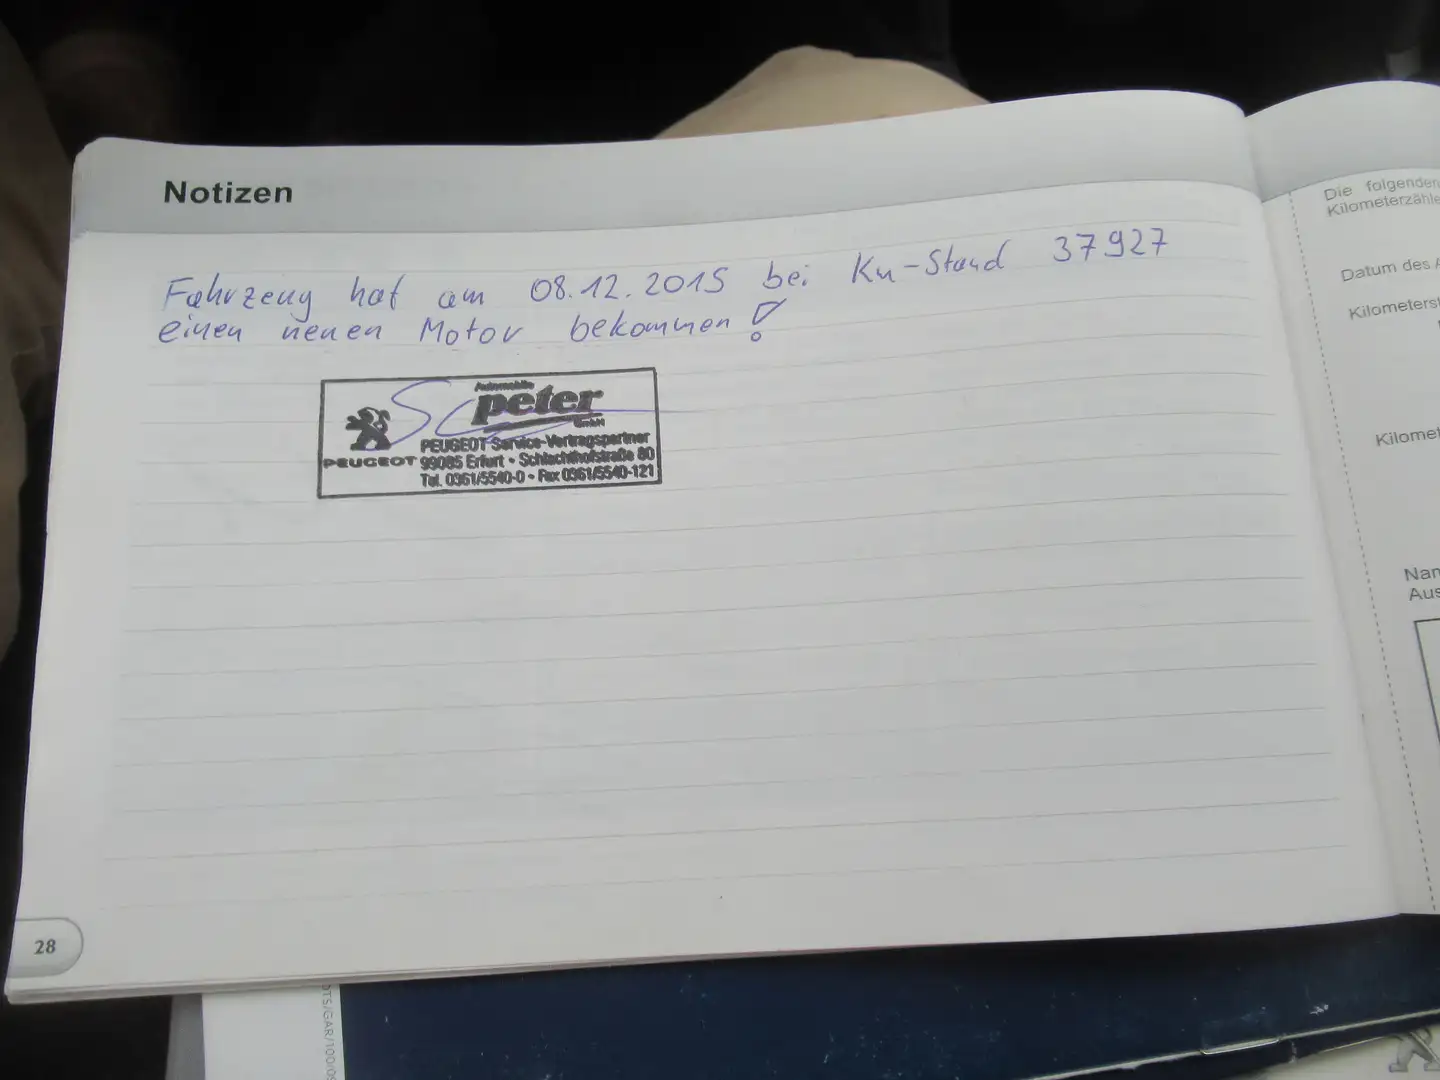 Notizen
Fahrzeug hat am 08.12.2015 bei Km-Stand 37927
einen neuen Motor bekommen!
Automobile
peter
GmbH
PEUGEOT Service-Vertragspartner
PEUGEOT 99085 Erfurt • Schlachthofstraße 80
Tel. 0361/5540-0 • Fax 0361/5540-121
28
Die folgenden
Kilometerzähle
Datum des A
Kilometerst
Kilomet
Nam
Aus